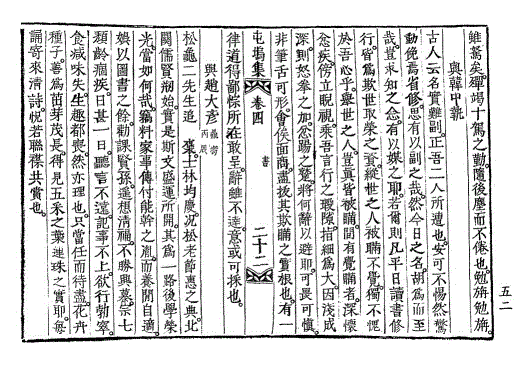 雖駑矣殫竭十駕之勤隨後塵而不倦也勉旃勉旃
與韓中執
古人云名實難副正吾二人所遭也安可不惕然驚
動俛焉省修思有以副之哉然今日之名胡為而至
哉豈求知之念有以媒之耶若爾則凡平日讀書修
行皆為欺世取榮之資縱世之人被瞞不覺獨不怛
於吾心乎舉世之人豈眞皆被瞞間有覺瞞者深懷
忿疾傍立睨視乗吾言行之瑕隙指細為大因淺成
深則怒拳之加忿踢之將何辭以避耶可畏可慎
非筆舌可形會俟面商盡拔其欺瞞之實根也有一
屯塢集 卷四 書 二十二
律道得鄙悰所在敢呈辭雖不達意或可採也
與趙大彥 丙辰
松龜二先生追褒士林均慶况松老節惠之典北
關儒賢剏始實是斯文盛運所開其為一路後學榮
光當如何哉獨料家事傳付能幹之胤而養閒自適
娛以圖書之餘勸課賢孫遥想清福不勝興慕宗七
頹齡痼疾日甚一日聽言不遠記事不上欲行勃窣
食減味失生趣都喪然亦理也只當任而待盡花卉
種子善為苗芽茂長得見五采之葉連珠之實耶每
誦寄來清詩怳若聯襟共賞也
五二